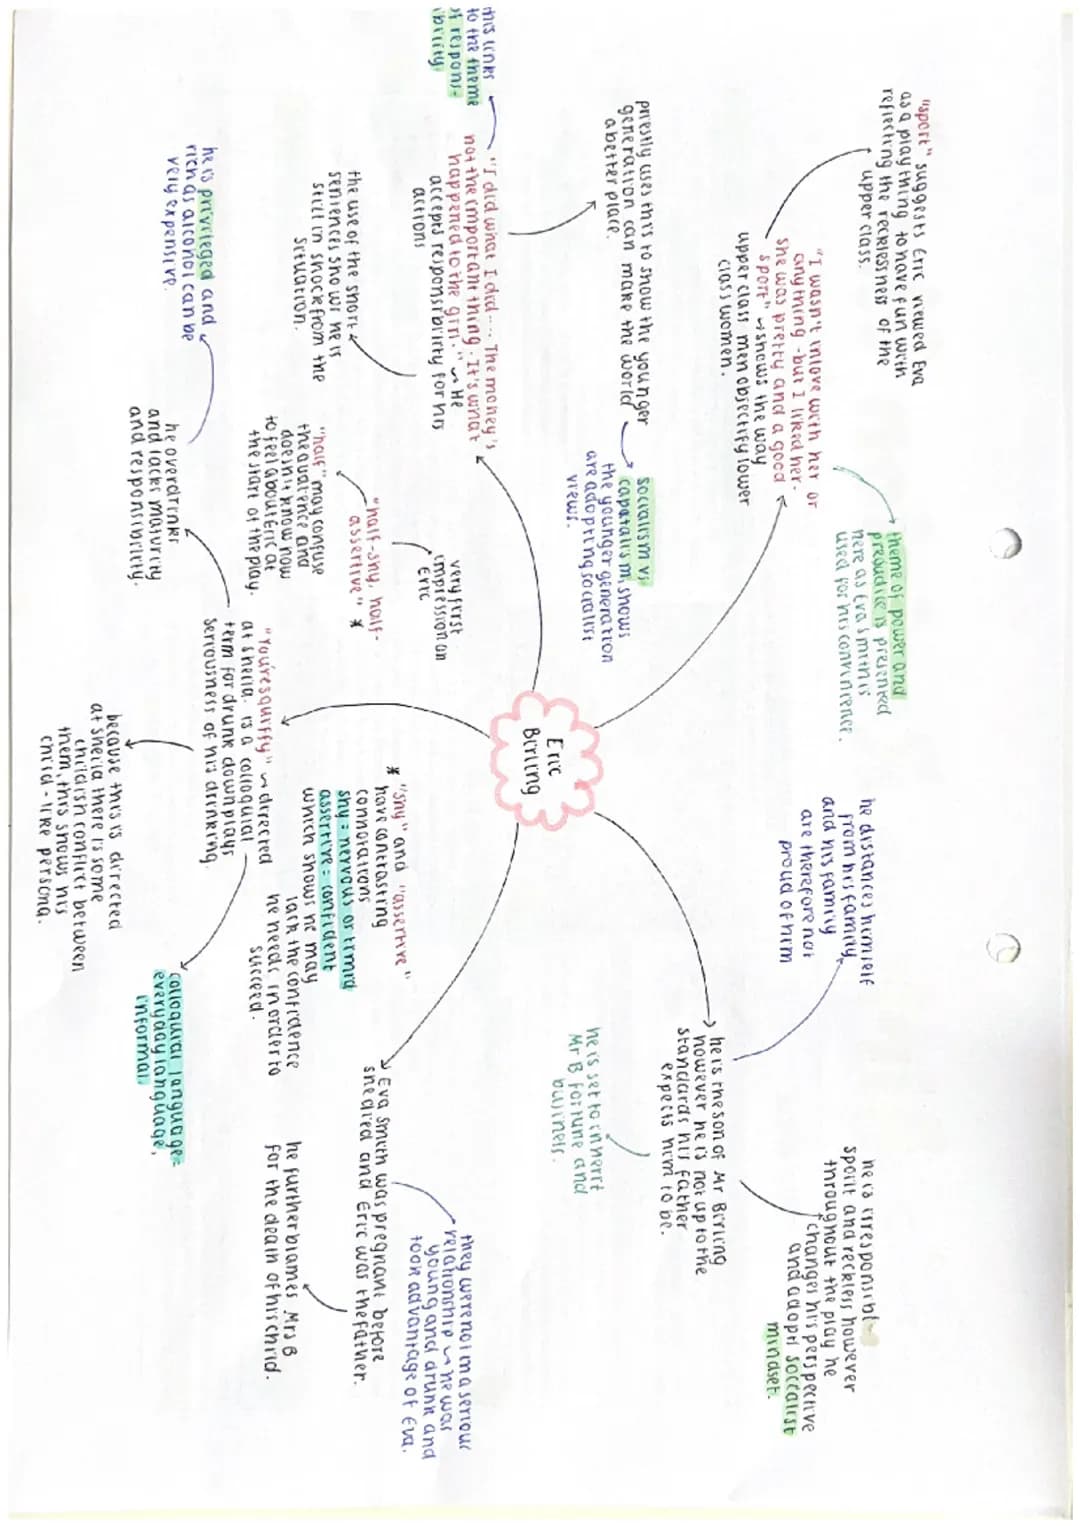 Eric
Birling
"sport" suggests Eric viewed Eva
as a play thing to have fun with
reflecting the recklessness of the
upper class.
"I wasn't inlove with her or
anything - but I liked her-
she was pretty and a good
sport" ~ shows the way
upper class men objectify lower
class women.
theme of power and
prejudice is presented
here as Eva Smith is
used for his convinience.
priestly uses this to show the younger
generation can make the world
a better place.
socialism vs
capatalism, shows
the younger generation
are adopting socialist
views.
this links
to the theme
of respons-
ibility.
"I did what I did.... The money's
not the important thing. It's what
happened to the girl." ~ He
accepts responsibility for his
actions
the use of the short
sentences shows he is
still in shock from the
situation.
very first
impression on
Eric
"half-shy, half-
assertive" *
"half" may confuse
the audience and
doesn't know how
to feel about Eric at
the start of the play.
* "shy" and "assertive"
have contrasting
connotations
shy = nervous or timid
assertive = confident
which shows he may
lack the confidence
he needs in order to
succeed.
"You're squiffy" ~ directed
at sheila. is a colloquial
term for drunk downplays
seriousness of his drinking.
he overdrinks
and lacks maturity
and responsibility.
he is privileged and
rich as alcohol can be
very expensive.
because this is directed
at sheila there is some
childish conflict between
them, this shows his
child-like persona.
colloquial language=
everyday language,
informal.
he distances himself
from his family
and his family
are therefore not
proud of him
he is the son of Mr Birling
however he is not up to the
standards his father
expects him to be.
he is set to inherit
Mr B fortune and
business.
he is irresponsible
spoilt and reckless however
throughout the play he
changes his perspective
and adopts socialist
mindset.
Eva smith was pregnant before
she died and Eric was the father.
they were not in a serious
relationship ~ he was
young and drunk and
took advantage of Eva.
he further blames Mrs B
for the death of his child.